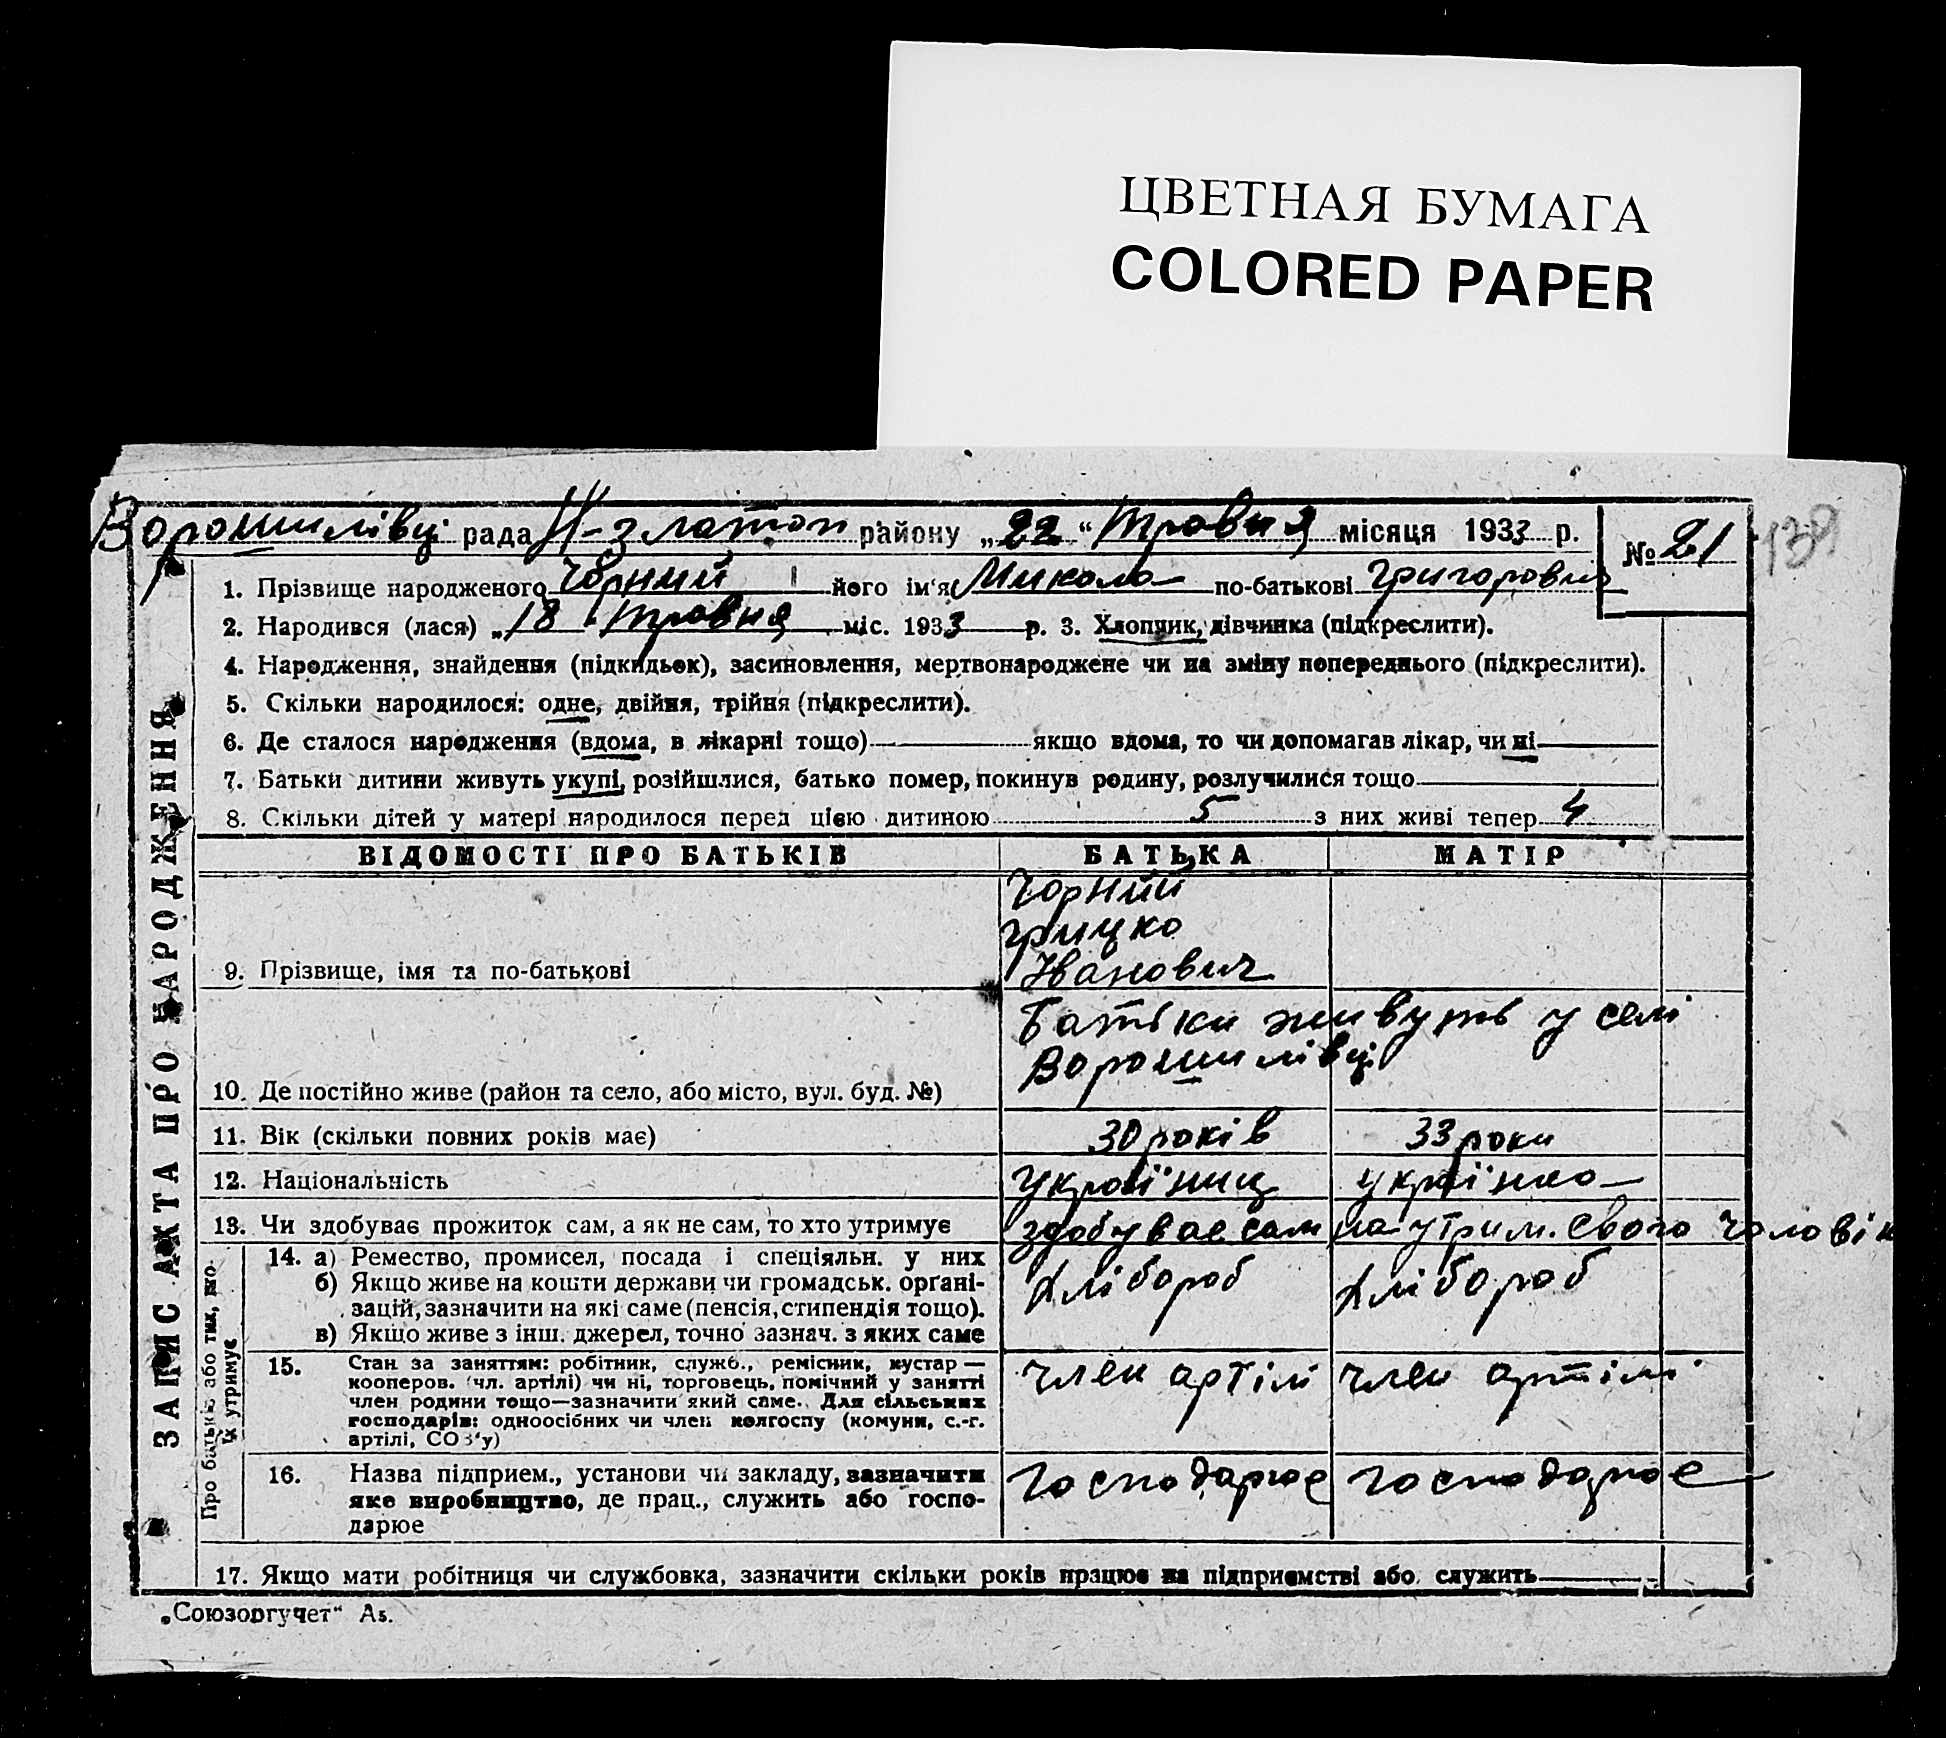 ЦВЕТНАЯ БУМАГА
COLORED PAPER
Ворошилівці рада Н-златоп району „22“ Травня місяця 1933 р. № 21
138
1. Прізвище народженого Чорний його ім‘я Микола по-батькові Григорович
2. Народився (лася) „18 Травня міс. 1933 р. 3. Хлопчик, дівчинка (підкреслити).
4. Народження, знайдення (підкидьок), засиновлення, мертвонароджене чи на зміну попереднього (підкреслити).
5. Скільки народилося: одне, двійня, трійня (підкреслити).
6. Де сталося народження (вдома, в лікарні тощо) якщо вдома, то чи допомагав лікар, чи ні
7. Батьки дитини живуть укупі, розійшлися, батько помер, покинув родину, розлучилися тощо
8. Скільки дітей у матері народилося перед цією дитиною 5 з них живі тепер 4
ЗАПИС АКТА ПРО НАРОДЖЕННЯ
ВІДОМОСТІ ПРО БАТЬКІВ БАТЬКА МАТІР
Чорний
Грицко
9. Прізвище, імя та по-батькові Іванович
Батьки живуть у селі
Ворошилівці
10. Де постійно живе (район та село, або місто, вул. буд. №)
11. Вік (скільки повних років має) 30 років 33 роки
12. Національність Україниц українко
13. Чи здобуває прожиток сам, а як не сам, то хто утримує здобуває сам на утрим. свого чоловік
Про батьків або тих, хто
їх утримує
14. а) Ремество, промисел, посада і спеціяльн. у них
б) Якщо живе на кошти держави чи громадськ. орґані- Хлібороб Хлібороб
зацій, зазначити на які саме (пенсія, стипендія тощо).
в) Якщо живе з інш. джерел, точно зазнач. з яких саме
15. Стан за заняттям: робітник, служб., ремісник, кустар —
кооперов. (чл. артілі) чи ні, торговець, помічний у занятті член артілі член артілі
член родини тощо—зазначити який саме. Для сільських
господарів: одноосібних чи член колгоспу (комуни, с.-г.
артілі, СОЗ‘у)
16. Назва підприєм., установи чи закладу, зазначити Господарює господарює
яке виробництво, де прац., служить або госпо-
дарює
17. Якщо мати робітниця чи службовка, зазначити скільки років працює на підприємстві або служить
„Союзоргучет“ А5.